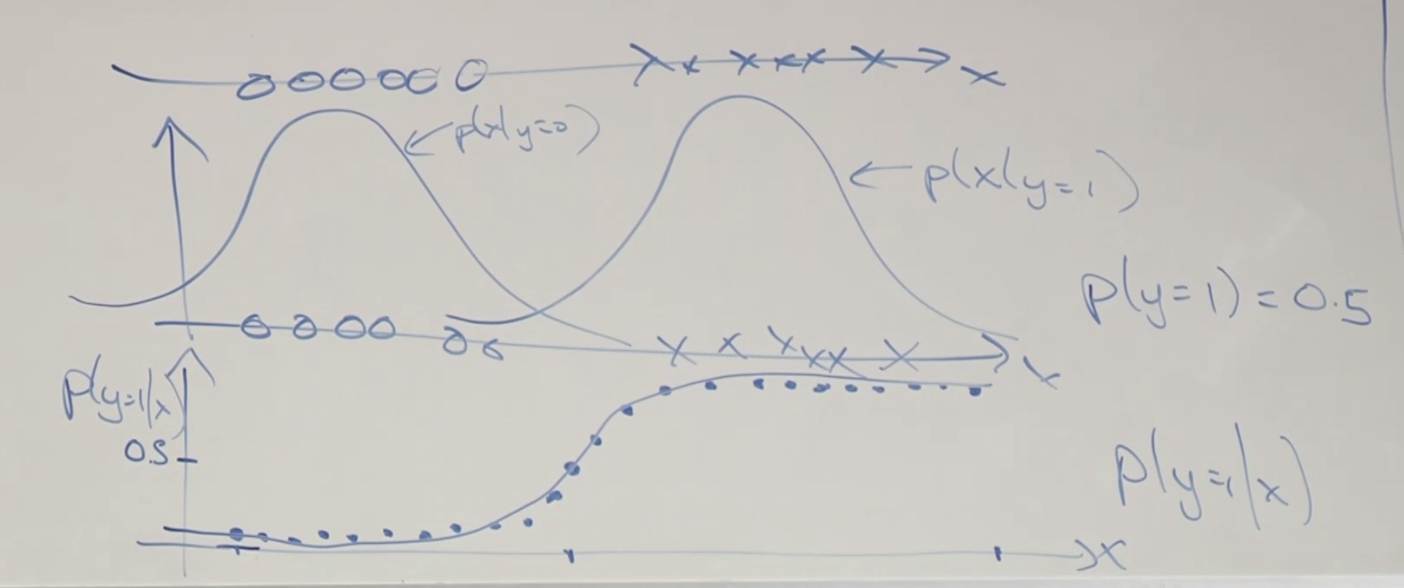 x
p(x|y=0)
p(x|y=1)
p(y=1)=0.5
x
p(y=1|x)
0.5
p(y=1|x)
x